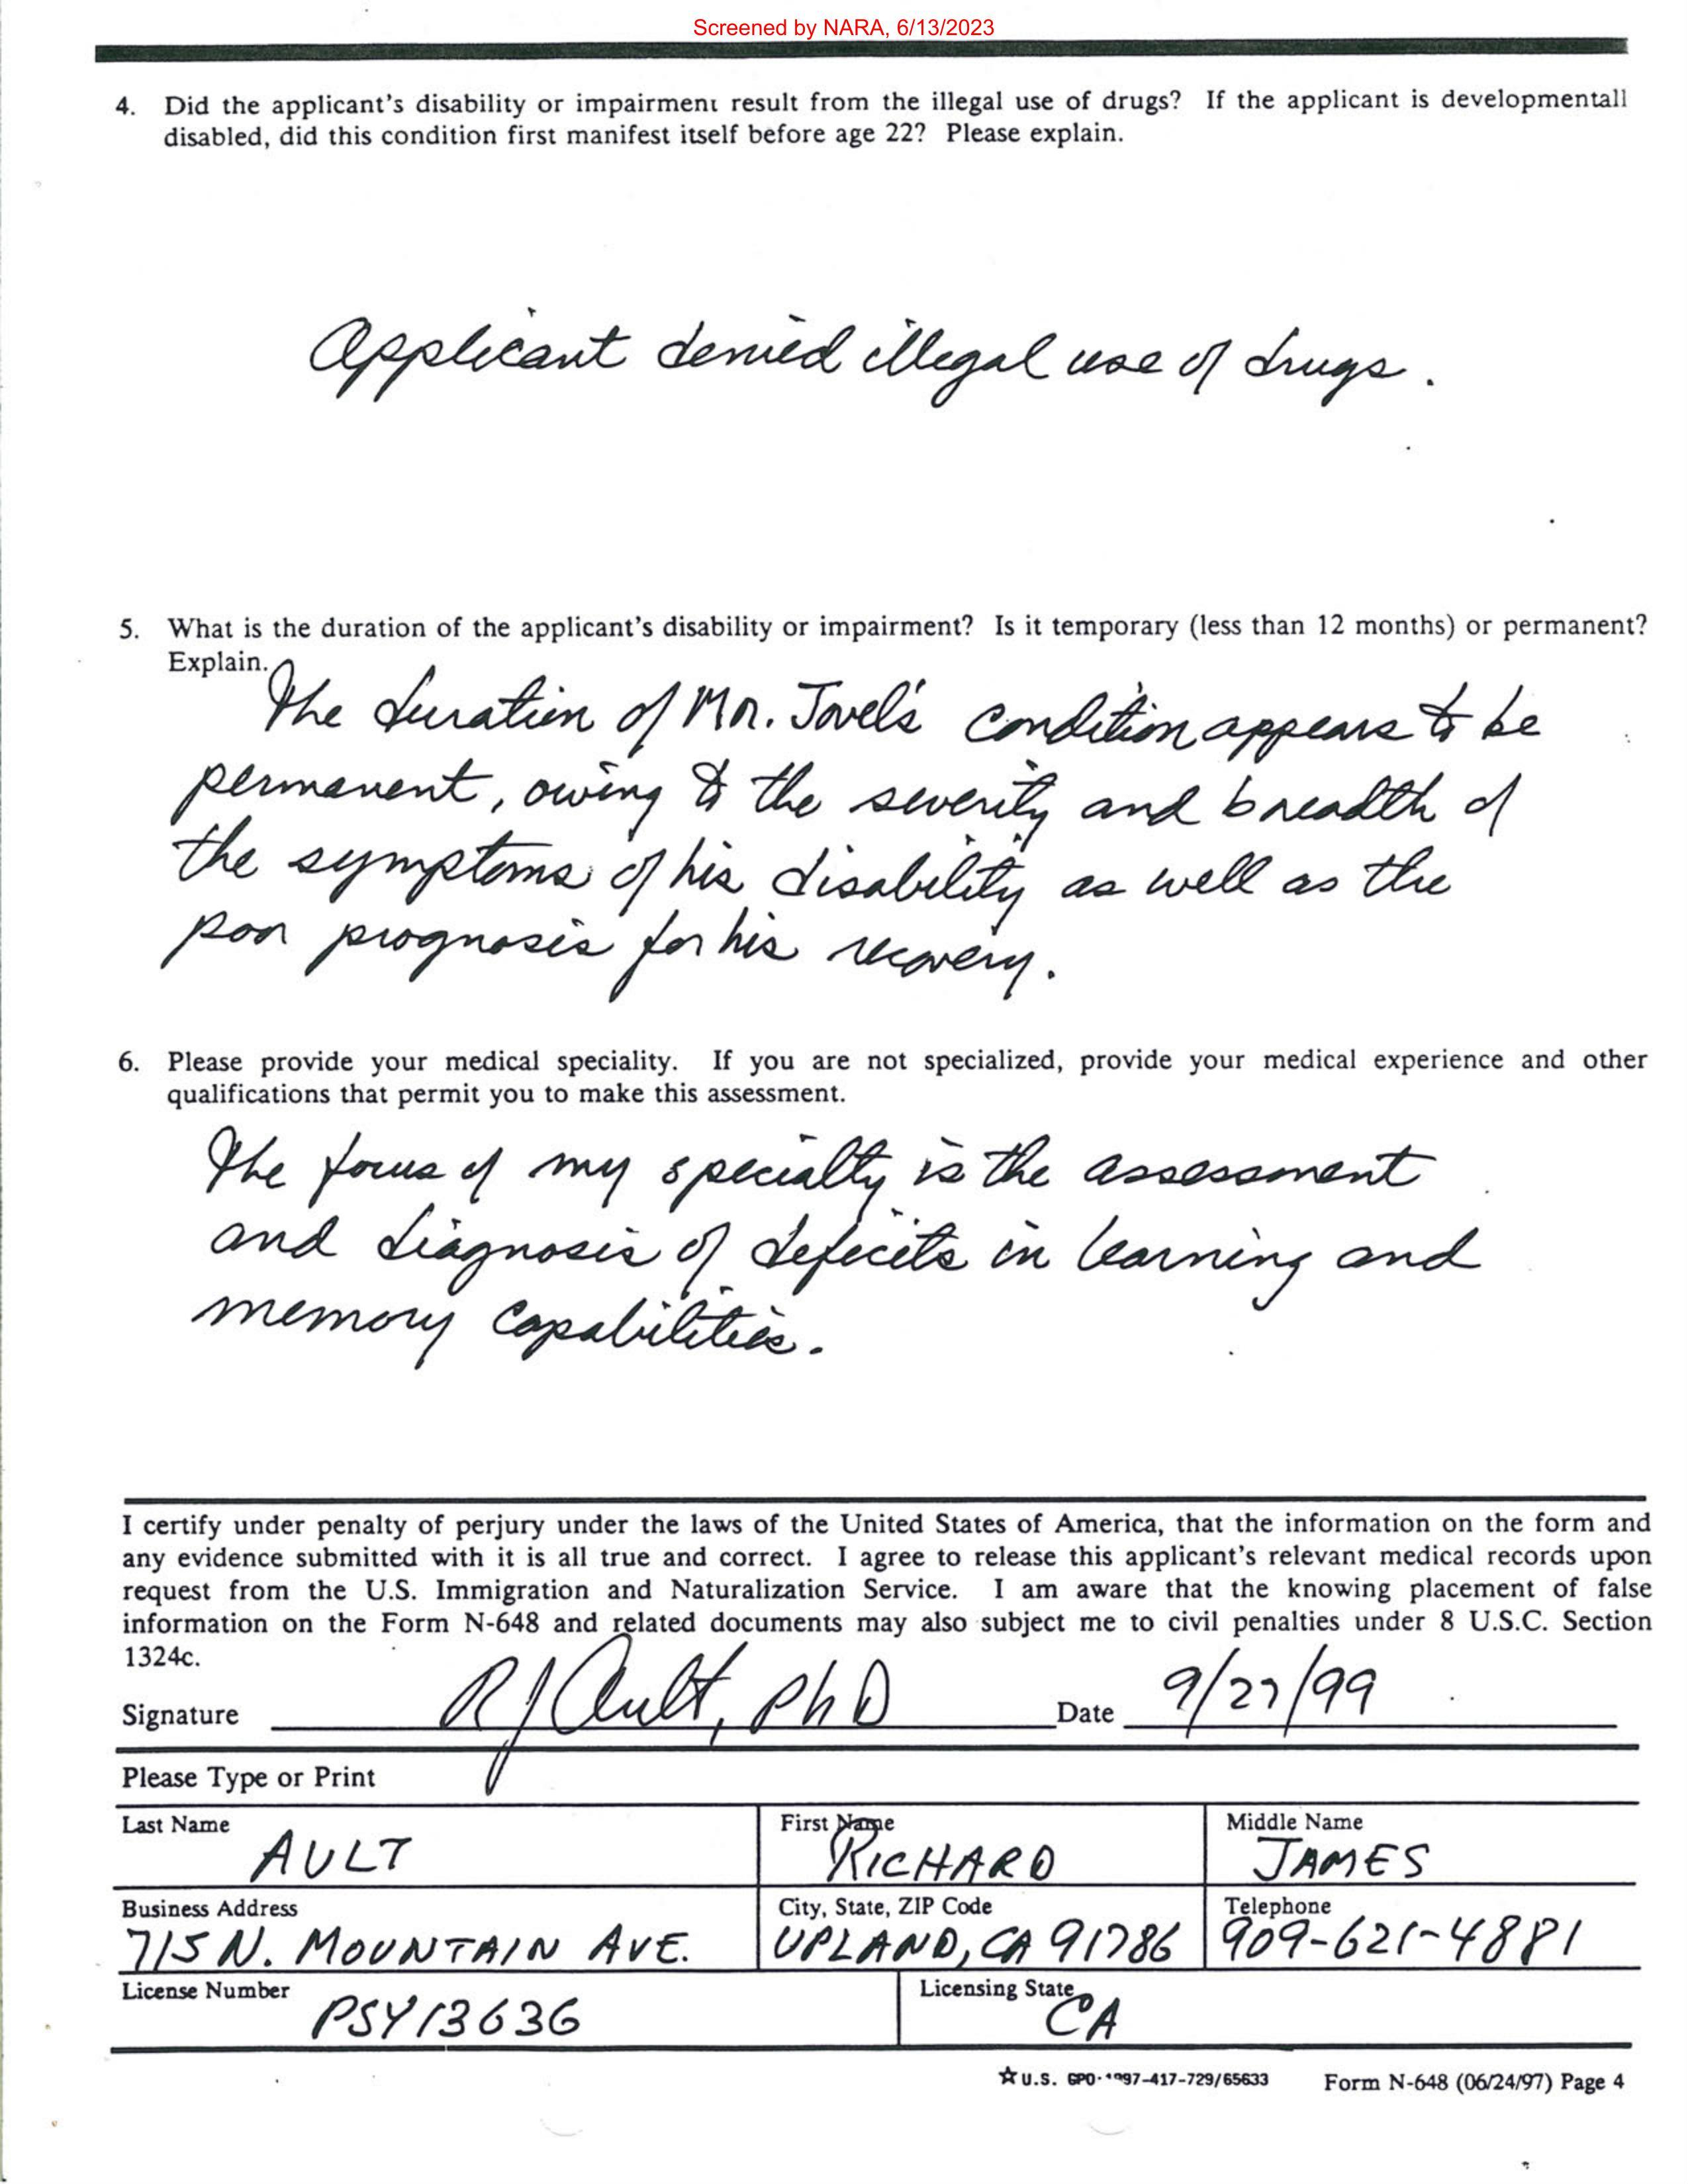 Screened by NARA, 6/13/2023
4. Did the applicant's disability or impairment result from the illegal use of drugs? If the applicant is developmentall
disabled, did this condition first manifest itself before age 22? Please explain.
Applicant denied illegal use of drugs.
5. What is the duration of the applicant's disability or impairment? Is it temporary (less than 12 months) or permanent?
Explain.
The duration of Mr. Jovel's condition appears to be
permanent, owing to the severity and breadth of
the symptoms of his disability as well as the
poor prognosis for his recovery.
6. Please provide your medical speciality. If you are not specialized, provide your medical experience and other
qualifications that permit you to make this assessment.
The focus of my specialty is the assessment
and diagnosis of deficits in learning and
memory capabilities.
I certify under penalty of perjury under the laws of the United States of America, that the information on the form and
any evidence submitted with it is all true and correct. I agree to release this applicant's relevant medical records upon
request from the U.S. Immigration and Naturalization Service. I am aware that the knowing placement of false
information on the Form N-648 and related documents may also subject me to civil penalties under 8 U.S.C. Section
1324c.
Signature RJ Ault, PhD Date 9/27/99
Please Type or Print
Last Name First Name Middle Name
AULT RICHARD JAMES
Business Address City, State, ZIP Code Telephone
715 N. MOUNTAIN AVE. UPLAND, CA 91786 909-621-4881
License Number Licensing State
PSY13636 CA
☆U.S. GPO: 1997-417-729/65633 Form N-648 (06/24/97) Page 4